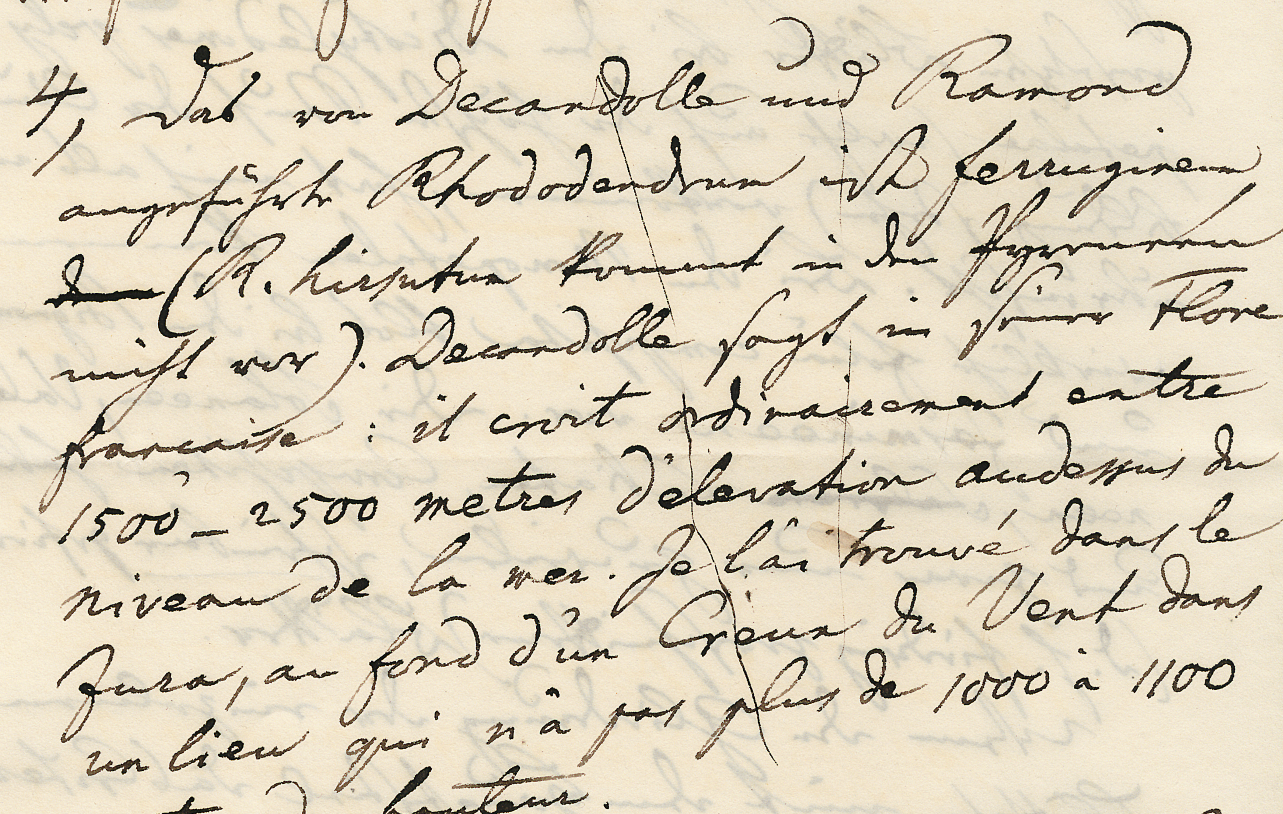 4, Das von Decandolle und Ramond
angeführte Rhododendrum ist ferrugineum
(R. hirsutum kommt in den Pyrenäen
nicht vor). Decandolle sagt in seiner Flore
francaise: il croit ordinairement entre
1500 – 2500 metres d'élevation audessus du
niveau de la mer. Je l'ai trouvé dans le
Jura, au fond d'un Creux du Vent dans
un lieu qui n'à pas plus de 1000 à 1100
hauteur.